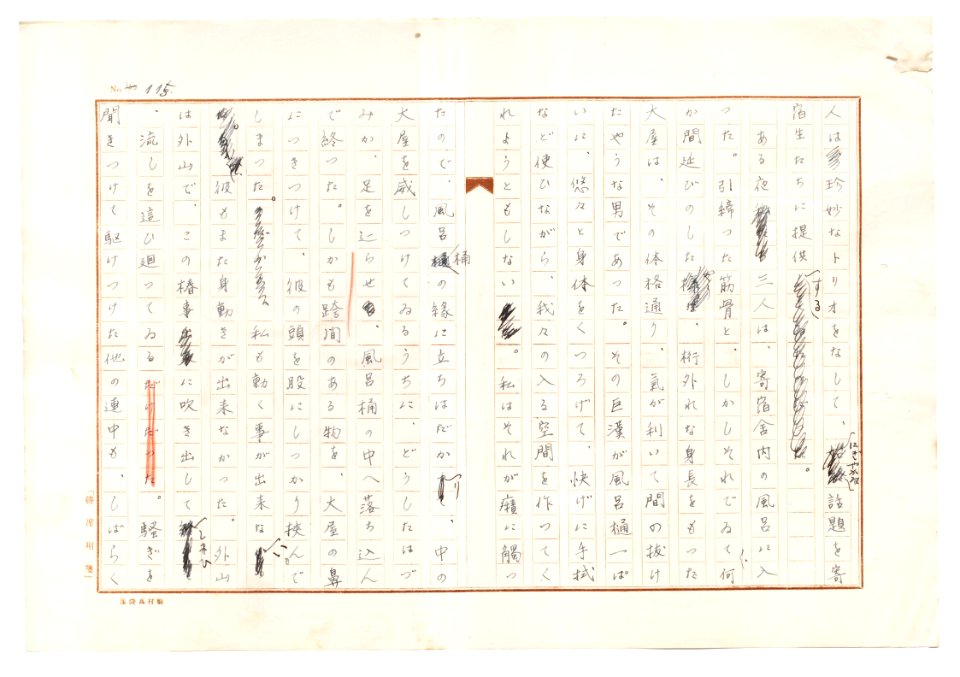 No. 115.
人は珍妙なトリオをなして、にぎやかな話題を寄
宿生たちに提供する。
ある夜三人は、寄宿舎内の風呂に入
つた。引締つた筋骨と、しかしそれでゐて何
か間延びのした、桁外れな身長をもつた
大屋は、その体格通り、気が利いて間の抜け
たやうな男であつた。その巨漢が風呂桶一ぱ
いに、悠々と身体をくつろげて、快げに手拭
など使ひながら、我々の入る空間を作つてく
れようともしない。私はそれが癪に觸つ
たので、風呂桶の縁に立ちはだかり、中の
大屋を威しつけてゐるうちに、どうしたはづ
みか、足を辷らせ、風呂桶の中へ落ち込ん
で終つた。しかも跨間のある物を、大屋の鼻
につきつけて、彼の頭を股にしつかり挟んで
しまつた。私も動く事が出来ない
彼もまた身動きが出来なかつた。外山
は外山で、この椿事に吹き出してしまひ
、流しを這ひ廻つてゐる。騒ぎを
聞きつけて駆けつけた他の連中も、しばらく